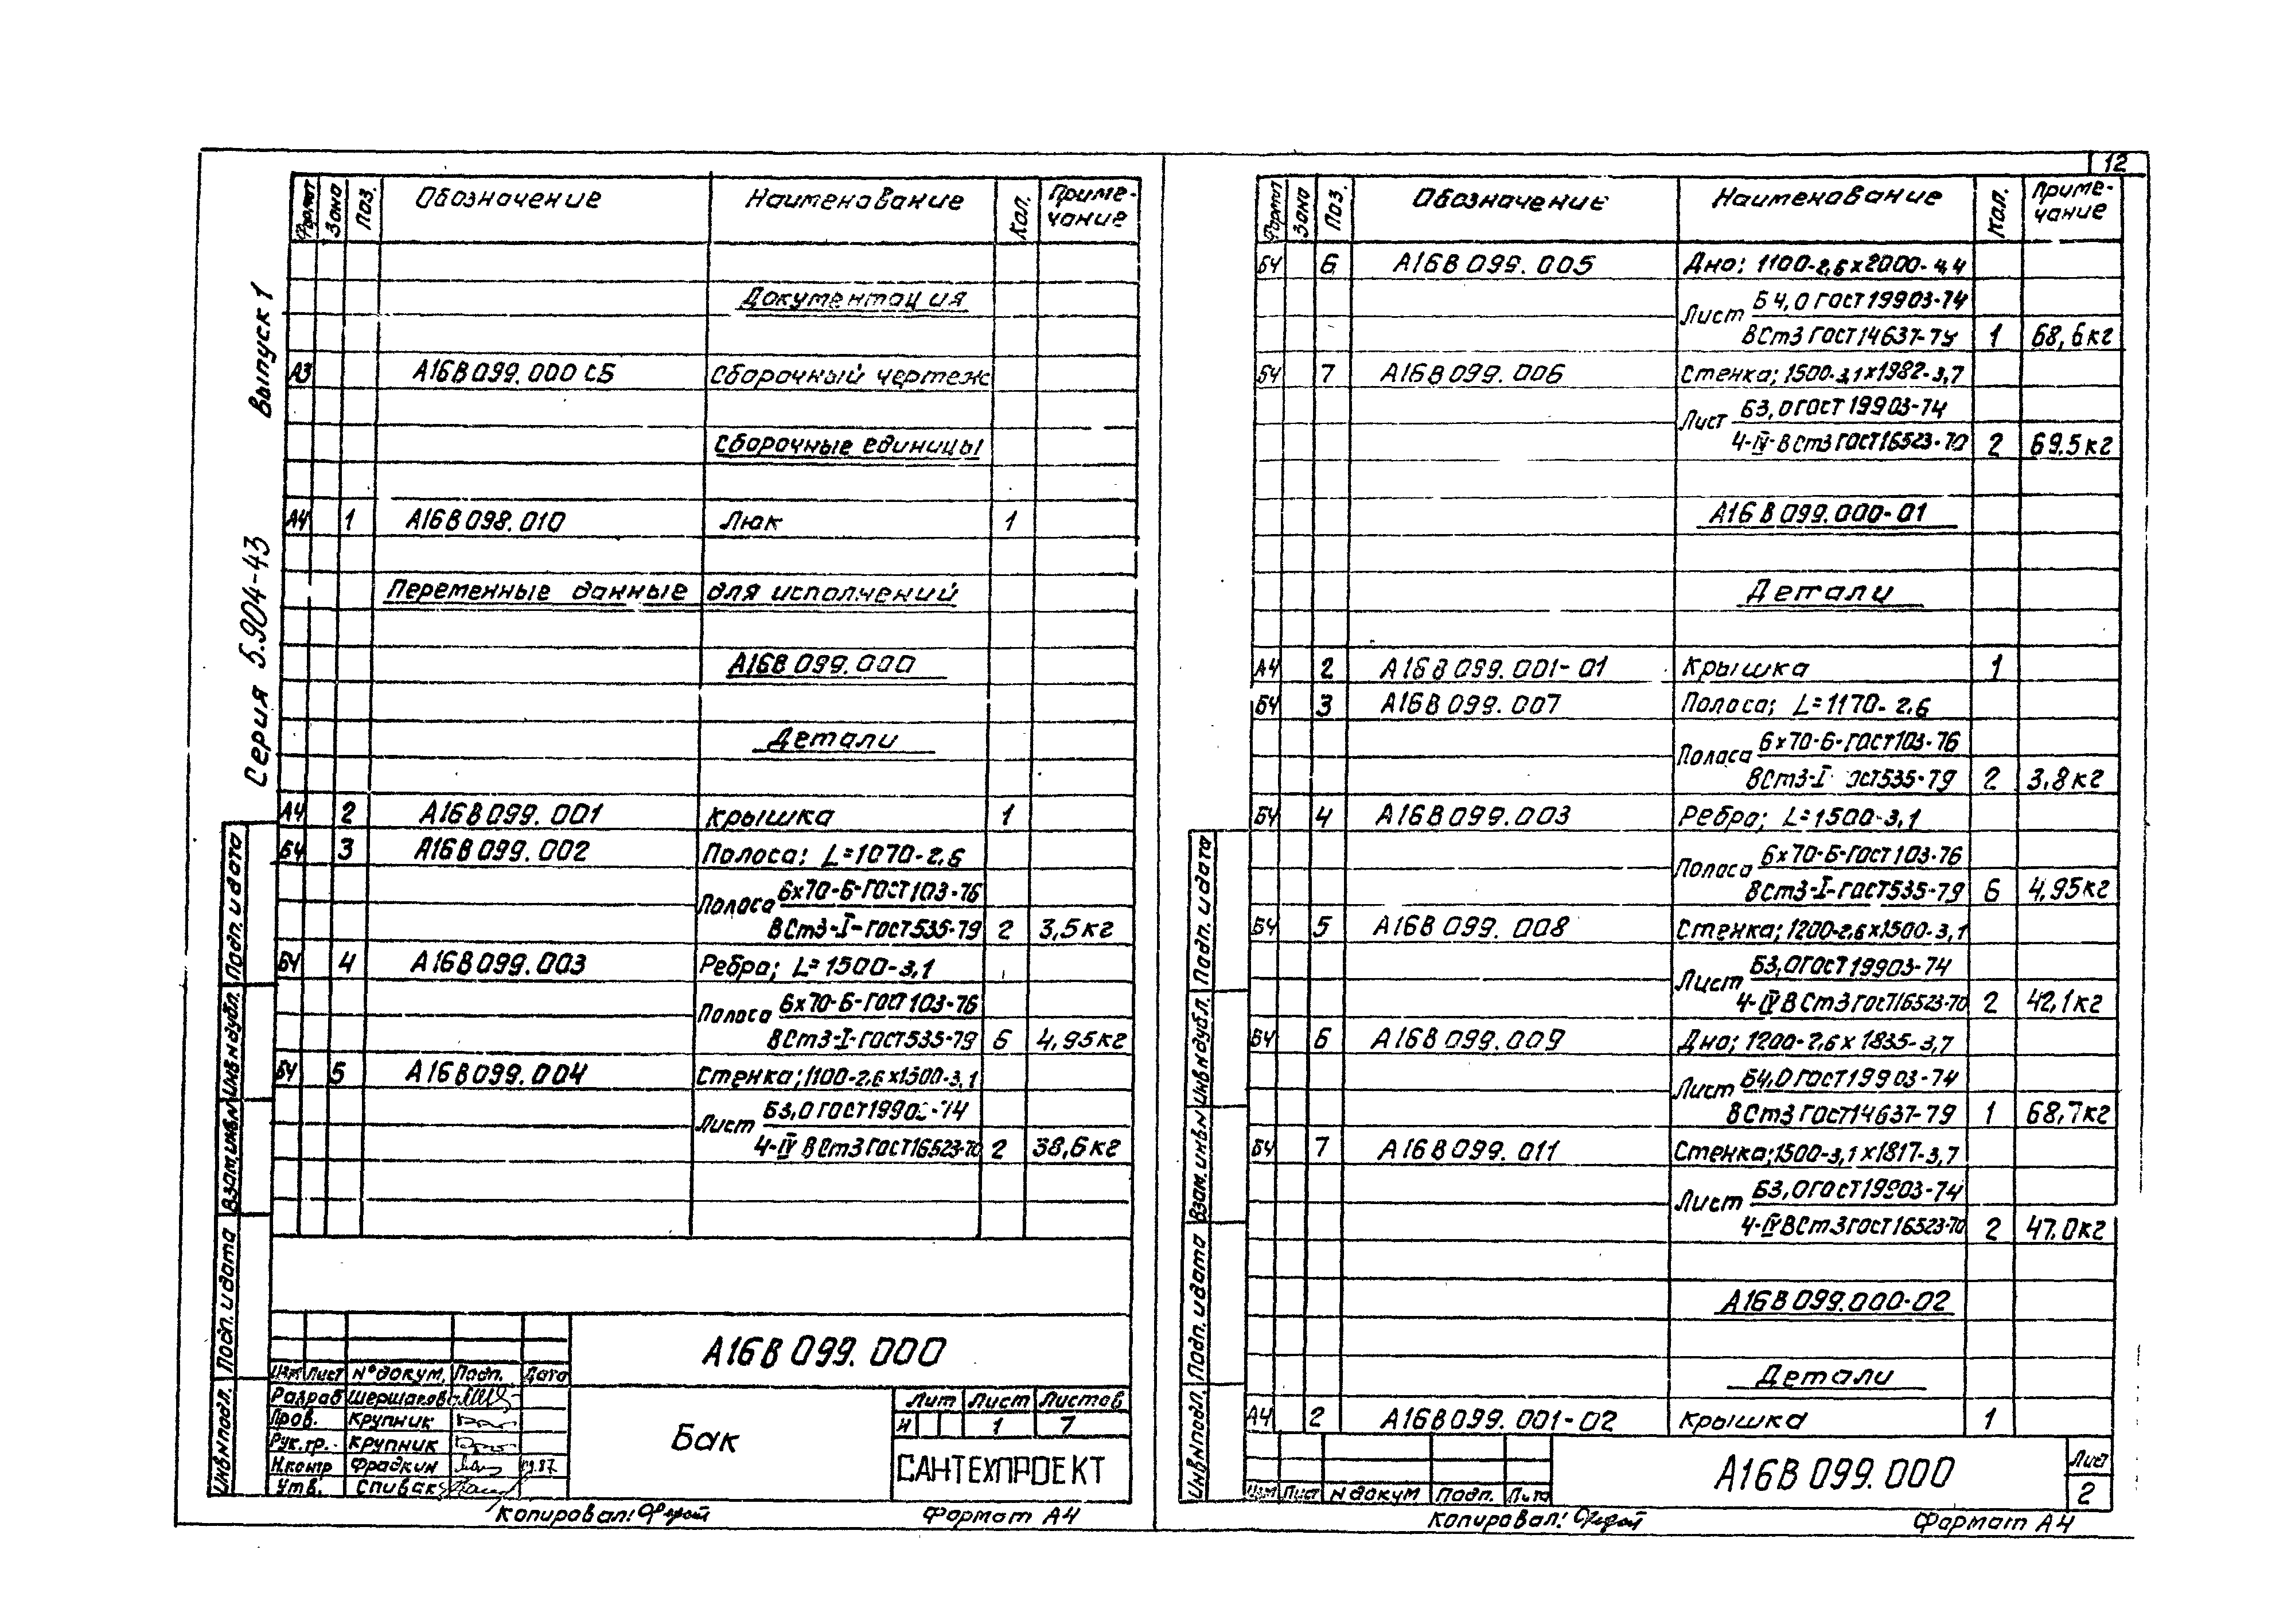 12
Серия 5.904-43 Выпуск 1
Формат Зона Поз. Обозначение Наименование Кол. Приме-
чание
Документация
А3 А16В099.000 СБ Сборочный чертеж
Сборочные единицы
А4 1 А16В098.010 Люк 1
Переменные данные для исполнений
А16В099.000
Детали
А4 2 А16В099.001 Крышка 1
БЧ 3 А16В099.002 Полоса; L=1070-2,6
Полоса 6х70-Б-ГОСТ103-76
ВСт3-I-ГОСТ535-79 2 3,5кг
БЧ 4 А16В099.003 Ребро; L=1500-3,1
Полоса 6х70-Б-ГОСТ103-76
ВСт3-I-ГОСТ535-79 6 4,95кг
БЧ 5 А16В099.004 Стенка; 1100-2,6х1500-3,1
Лист Б3,0 ГОСТ19903-74
4-IV ВСт3 ГОСТ16523-70 2 38,6кг
Подп. и дата
Инв№дубл.
Взам.инв№
Подп. и дата
Инв№подл.
А16В099.000
Изм Лист №докум. Подп. Дата
Разраб Шершаков
Пров. Крупник
Рук.гр. Крупник
Н.контр Фрадкин 09.87
Утв. Спивак
Бак
Лит Лист Листов
И 1 7
САНТЕХПРОЕКТ
Копировал: Формат А4
Формат Зона Поз. Обозначение Наименование Кол. Приме-
чание
БЧ 6 А16В099.005 Дно; 1100-2,6х2000-4,4
Лист Б4,0 ГОСТ19903-74
ВСт3 ГОСТ14637-79 1 68,6кг
БЧ 7 А16В099.006 Стенка; 1500-3,1х1982-3,7
Лист Б3,0 ГОСТ19903-74
4-IV-ВСт3 ГОСТ16523-70 2 69,5кг
А16В099.000-01
Детали
А4 2 А16В099.001-01 Крышка 1
БЧ 3 А16В099.007 Полоса; L=1170-2,6
Полоса 6х70-Б-ГОСТ103-76
ВСт3-I ОСТ535-79 2 3,8кг
БЧ 4 А16В099.003 Ребро; L=1500-3,1
Полоса 6х70-Б-ГОСТ103-76
ВСт3-I-ГОСТ535-79 6 4,95кг
БЧ 5 А16В099.008 Стенка; 1200-2,6х1500-3,1
Лист Б3,0 ГОСТ19903-74
4-IV ВСт3 ГОСТ16523-70 2 42,1кг
БЧ 6 А16В099.009 Дно; 1200-2,6х1835-3,7
Лист Б4,0 ГОСТ19903-74
ВСт3 ГОСТ14637-79 1 68,7кг
БЧ 7 А16В099.011 Стенка; 1500-3,1х1817-3,7
Лист Б3,0 ГОСТ19903-74
4-IV ВСт3 ГОСТ16523-70 2 47,0кг
А16В099.000-02
Детали
А4 2 А16В099.001-02 Крышка 1
Подп. и дата
Инв№дубл.
Взам.инв№
Подп. и дата
Инв№подл.
Изм Лист №докум Подп. Дата
А16В099.000
Лист
2
Копировал: Формат А4